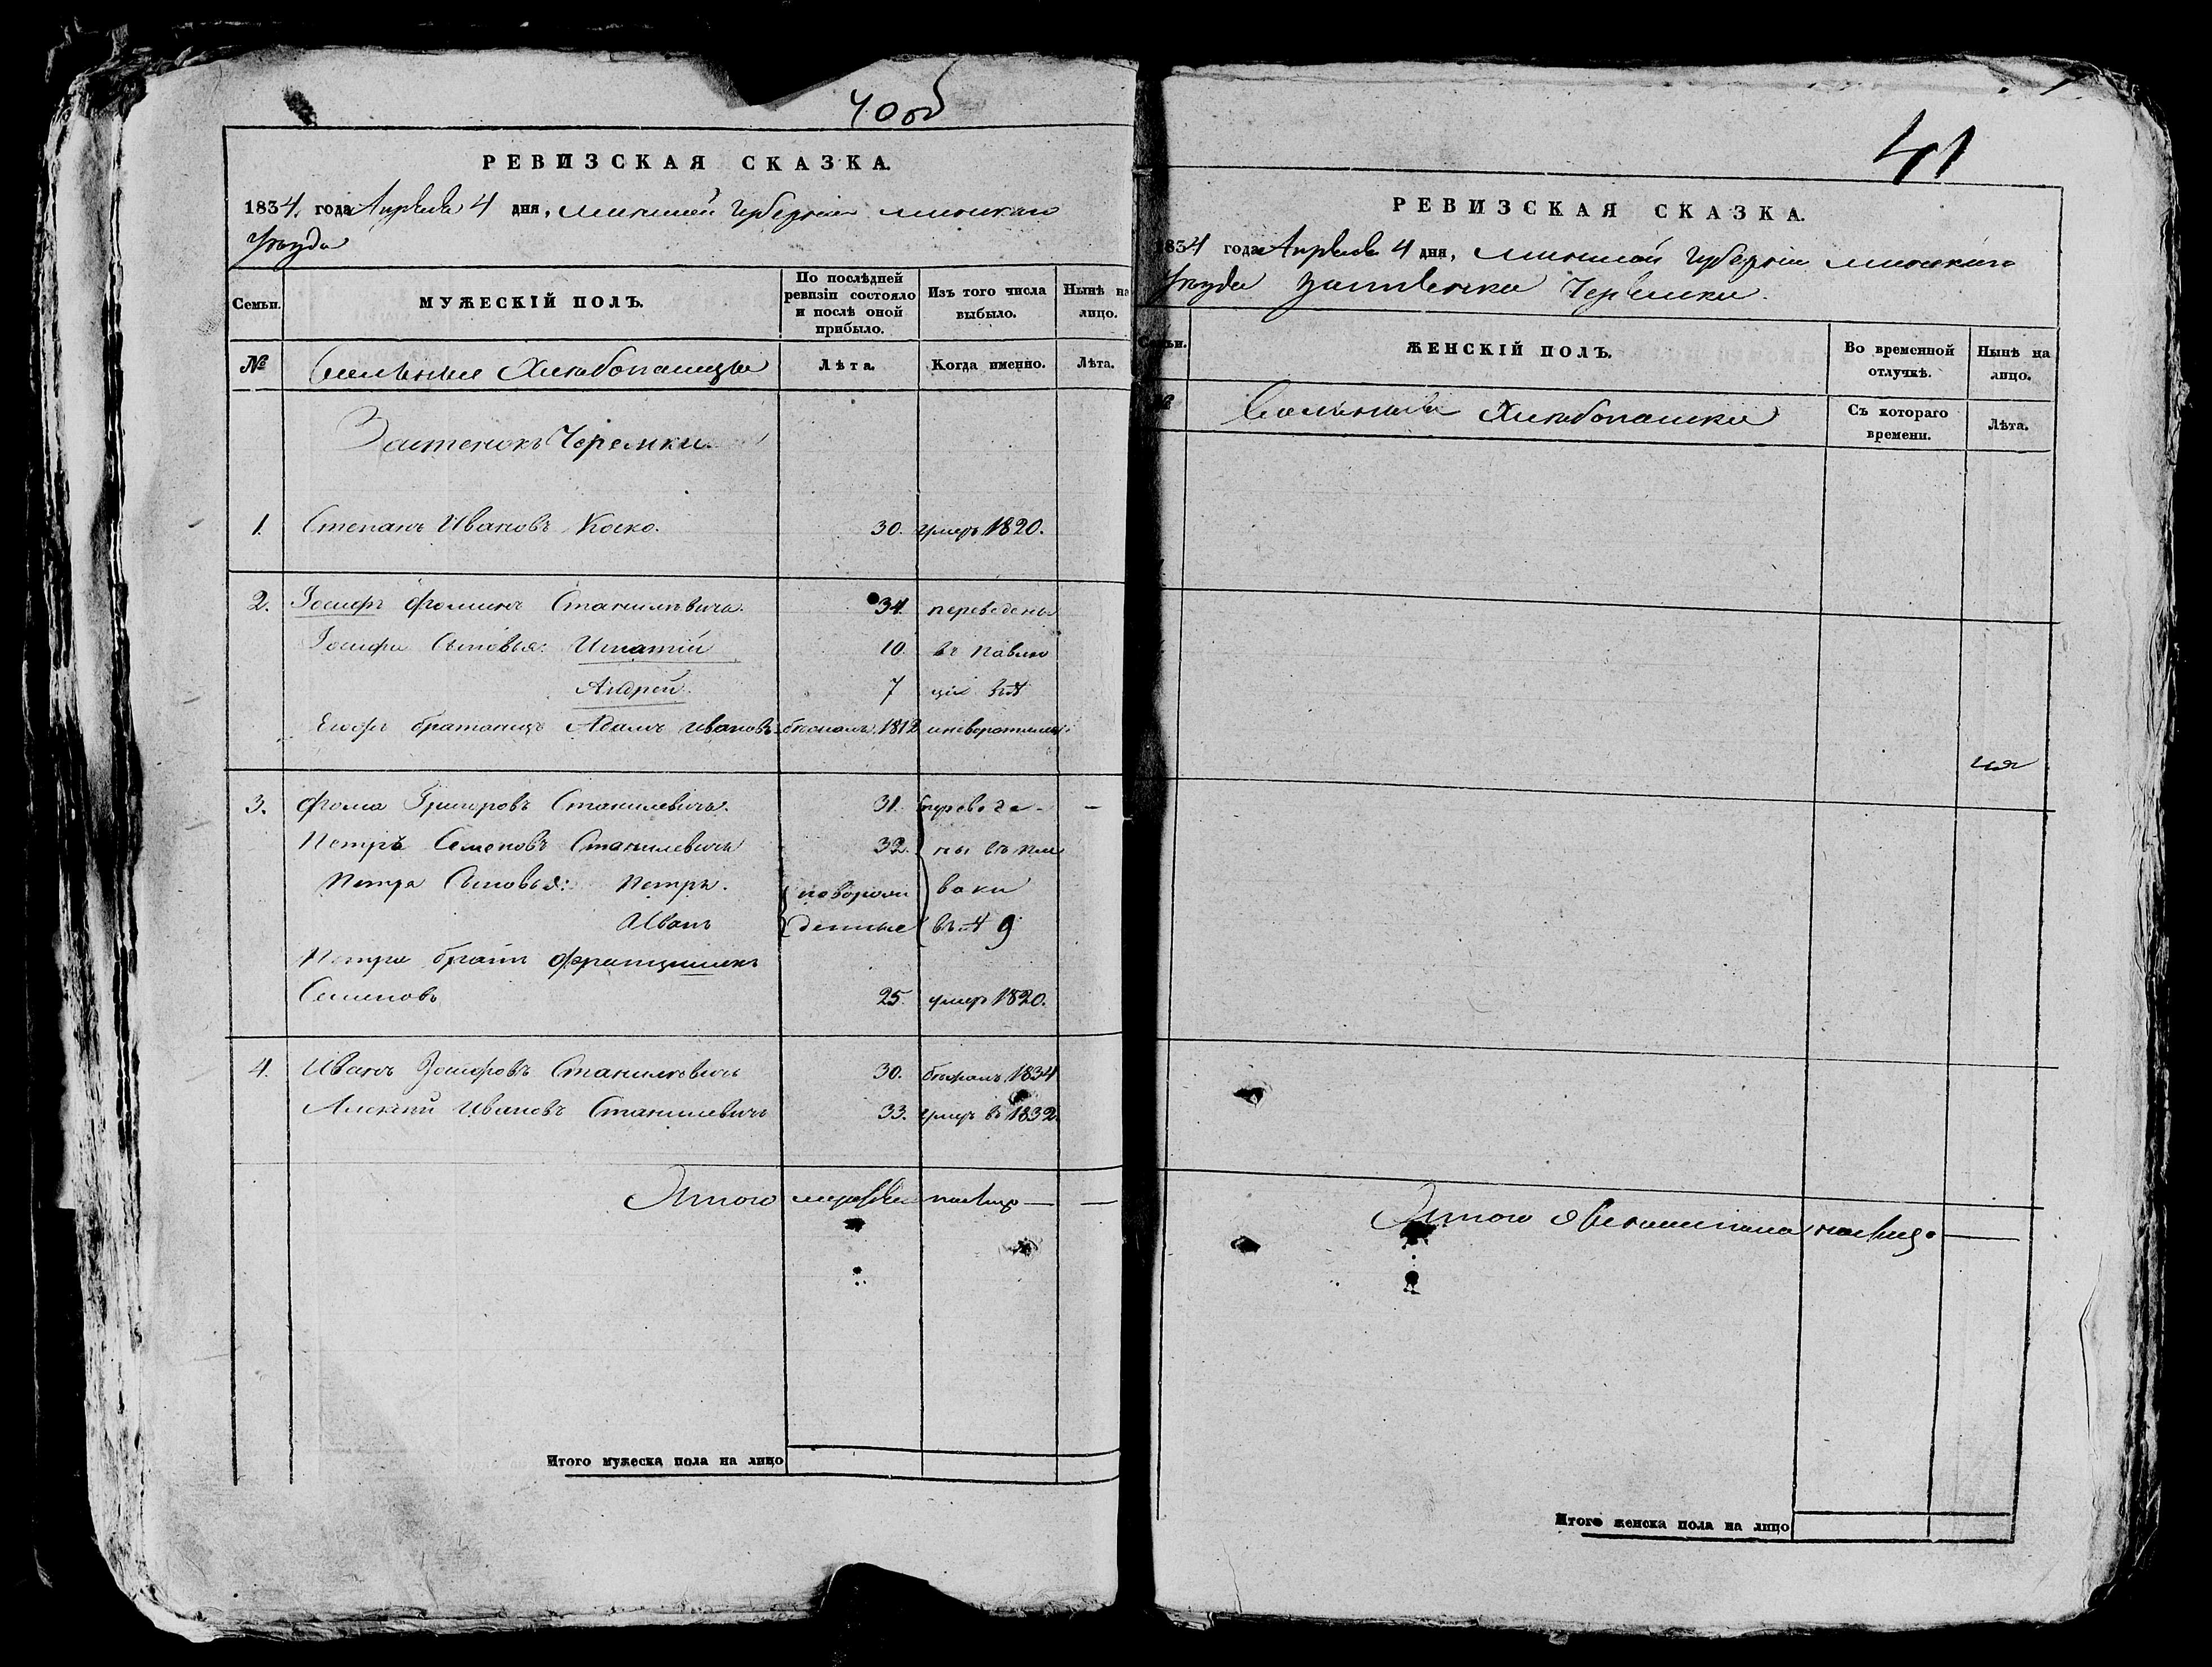 40об
РЕВИЗСКАЯ СКАЗКА.
1834. года Апреля 4 дня, Минской Губернии Минскаго
Уезда
Семьи.
МУЖЕСКІЙ ПОЛЪ.
По послѣдней ревизіи состояло и послѣ оной прибыло.
Изъ того числа выбыло.
Нынѣ на лицо.
№
Вольныя Хлебопашцы
Лѣта.
Когда именно.
Лѣта.
Застенокъ Черемки.
1. Степанъ Ивановъ Коско. 30. умеръ 1820.
2. Іосифъ Фоминъ Станилевичъ. 34. переведены
Іосифа Сыновья: Игнатій 10. въ Павлю
Андрей. 7
братаницъ Адамъ Ивановъ 1812
3. Фома Григоровъ Станилевичъ. 31. переведе- —
Петръ Семеновъ Станилевичъ 32. ны въ Пли
Петра Сыновья: Петръ. новорож ваки
Иванъ денные
Петра братъ Францишекъ
Семеновъ 25. умер 1820.
4. Иванъ Станилевичъ 30. бежалъ 1834
Алексей Ивановъ Станилевичъ 33. умеръ въ 1832.
Итого мужеска налицо — —
Итого мужеска пола на лицо
41
РЕВИЗСКАЯ СКАЗКА.
1834 года Апреля 4 дня, Минской Губернии Минскаго
Уезда застенка Черемки.
Семьи.
ЖЕНСКІЙ ПОЛЪ.
Во временной отлучкѣ.
Нынѣ на лицо.
№
Вольныя Хлебопашки
Съ котораго времени.
Лѣта.
Итого женска пола налицо —
Итого женска пола на лицо